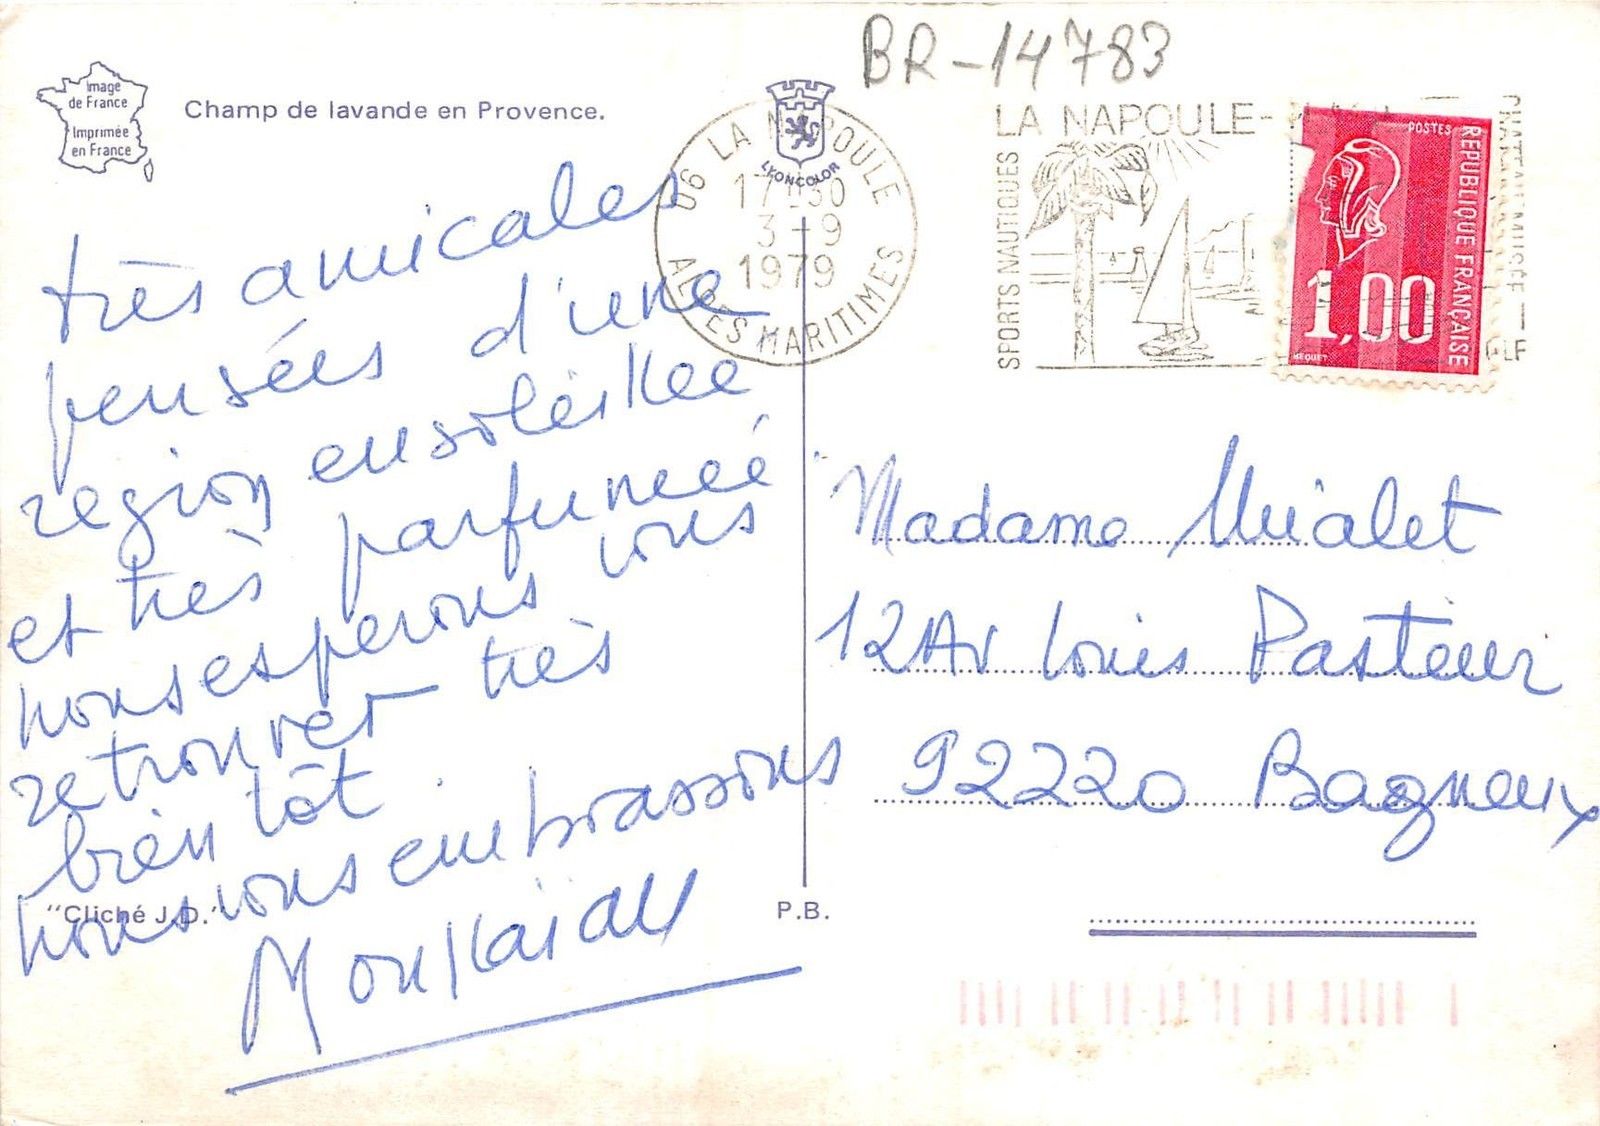 BR-14783
Image
de France
Imprimée
en France
Champ de lavande en Provence.
LYONCOLOR
06 LA NAPOULE
17H30
3-9
1979
ALPES MARITIMES
LA NAPOULE-
SPORTS NAUTIQUES
CHATEAU MUSÉE -
GOLF
POSTES
REPUBLIQUE FRANÇAISE
1,00
BEQUET
très amicales
pensées d'une
région ensoleillée
et très parfumée
nous esperons vous
retrouver très
bien tôt.
nous vous embrassons
Madame Mialet
12 Av Louis Pasteur
92220 Bagneux
"Cliché J.D."
P.B.